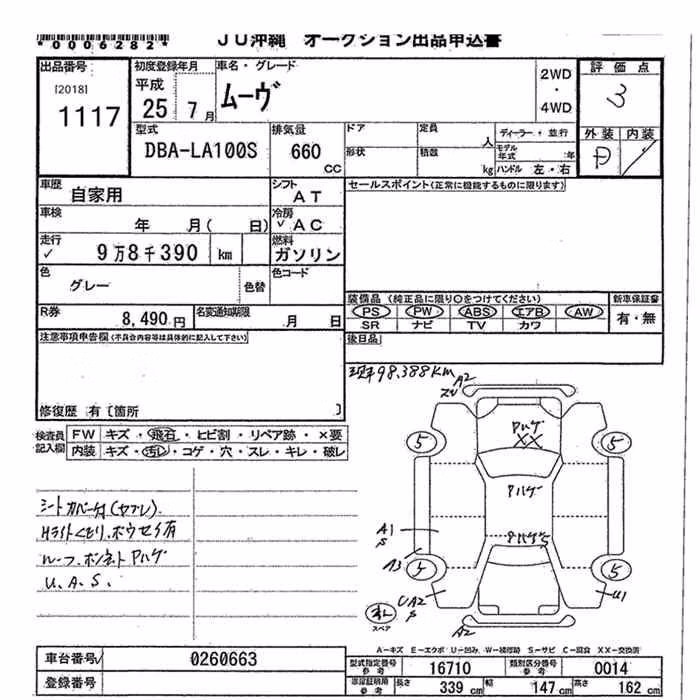 *0006282* JU沖縄 オークション出品申込書
出品番号 初度登録年月 車名・グレード 評価点
[2018] 1117 平成 25年 7月 ムーヴ 2WD・4WD 3
型式 排気量 ドア 定員 人 ディーラー・並行 外装 内装
DBA-LA100S 660 CC 形状 積数 kg モデル年式 年 ハンドル 左・右
車歴 自家用 シフト AT セールスポイント(正常に機能するものに限ります)
車検 年 月( 日) 冷房 ✓AC
走行 ✓ 9万8千390 km 燃料 ガソリン
色 グレー 色替 色コード
R券 8,490円 名変通知期限 月 日 装備品 (純正品に限り○をつけてください) 新車保証書
PS PW ABS エアB AW 有・無
SR ナビ TV カワ
注意事項申告欄(不具合内容等は具体的に記入して下さい) 後日品
修復歴 有〔箇所 〕
検査員記入欄 FW キズ・飛石・ヒビ割・リペア跡・×要
内装 キズ・汚レ・コゲ・穴・スレ・キレ・破レ
98,388KM
A2
Pハゲ
XX
5 5
Pハゲ
PハゲS
A1
S
A3
5 5
UA2
S
U1
A2
スペア
シートカバー付(ヤブレ)
Hライトくもり、ホウセキ有
ルーフ、ボンネット Pハゲ
U.A.S.
A-キズ E-エクボ U-凹み W-補修跡 S-サビ C-腐食 XX-交換済
車台番号 0260663 型式指定番号 参考 16710 類別区分番号 参考 0014
登録番号 参考 長さ 339 cm 幅 147 cm 高さ 162 cm